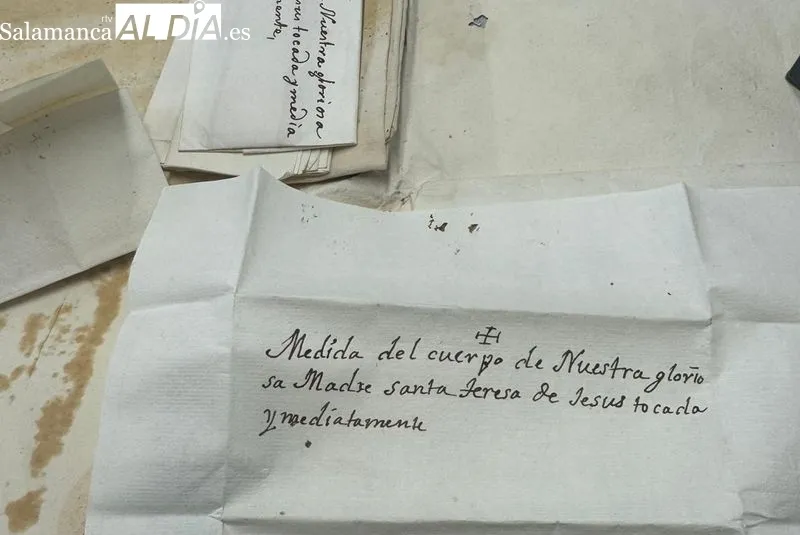 Salamanca rtv AL DÍA.es
Nuestra gloriosa
sus tocada y media
mente,
Medida del cuerpo de Nuestra glorio
sa Madre santa teresa de Jesus tocada
ymediatamente